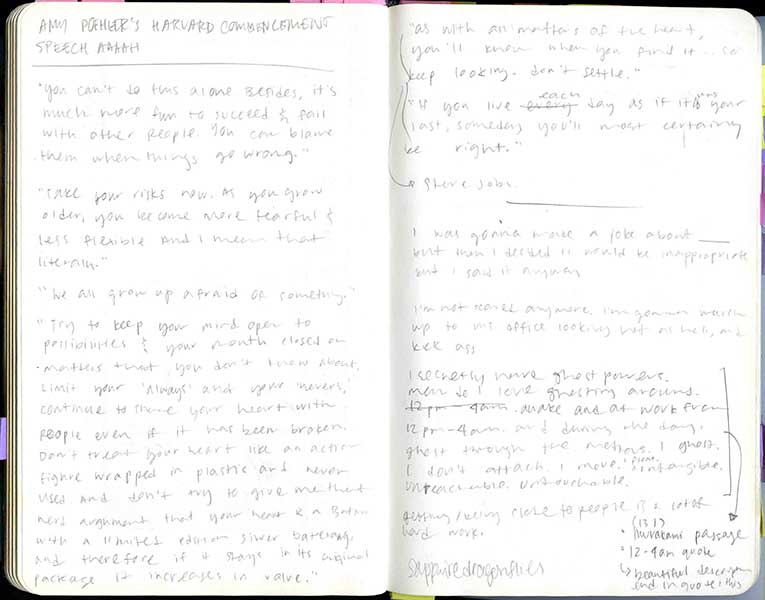 AMY POEHLER'S HARVARD COMMENCEMENT
SPEECH AAHAH
"you can't do this alone. Besides, it's
much more fun to succeed & fail
with other people. You can blame
them when things go wrong."
"Take your risks now. As you grow
older, you become more fearful &
less flexible And I mean that
literally."
"We all grow up afraid of something."
"Try to keep your mind open to
possibilities & your mouth closed on
matters that you don't know about.
Limit your 'always' and your 'nevers.'
Continue to share your heart with
people even if it has been broken.
Don't treat your heart like an action
figure wrapped in plastic and never
used And don't try to give me that
nerd argument that your heart is a Batman
with a limited edition silver batterang
and therefore if it stays in its original
package it increases in value."
"as with all matters of the heart,
you'll know when you find it.. so
keep looking. don't settle."
"If you live every each day as if it's was your
last, someday you'll most certainly
be right."
Steve Jobs.
I was gonna make a joke about ____
but then I decided it would be inappropriate
but I said it anyway
I'm not scared anymore. I'm gonna march
up to his office looking hot as hell, and
kick ass
I secretly have ghost powers.
Man do I love ghosting around.
12 pm - 4am. Awake and at work from
12 pm-4am. and during the day,
ghost through the motions. I ghost.
I don't attach. I move. intangible.
Unreachable. Untouchable.
getting/being close to people is a lot of
hard work.
(131)
• Murakami passage
• 12-4am quote
↳ beautiful description
end in quote: this
sapphiredragonflies